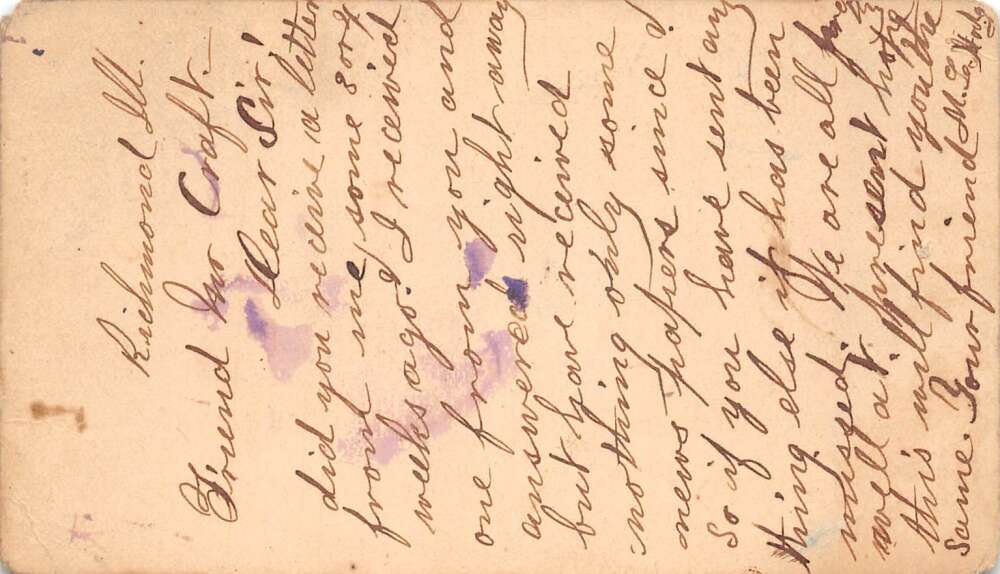 Richmond Ill.
Friend Mr Craft.—
Dear Sir!
did you receive a letter
from me some 3 or 4
weeks ago. I received
one from you and
answered right away
but have received
nothing only some
news papers since!
So if you have sent any
thing else it has been
missed. We are all
well at present hoping
this will find you the
same. Your friend M.